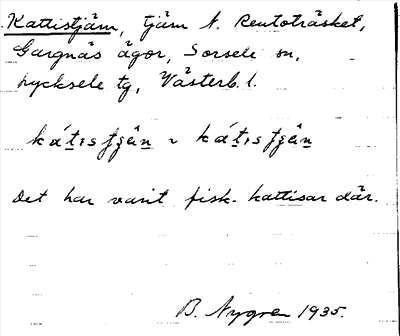 Kattistjärn, tjärn N. Rentoträsket,
Gargnäs ägor, Sorsele sn,
Lycksele tg, Västerb. l.
Det har varit fisk-kattisar där.
B. Nygren 1935.